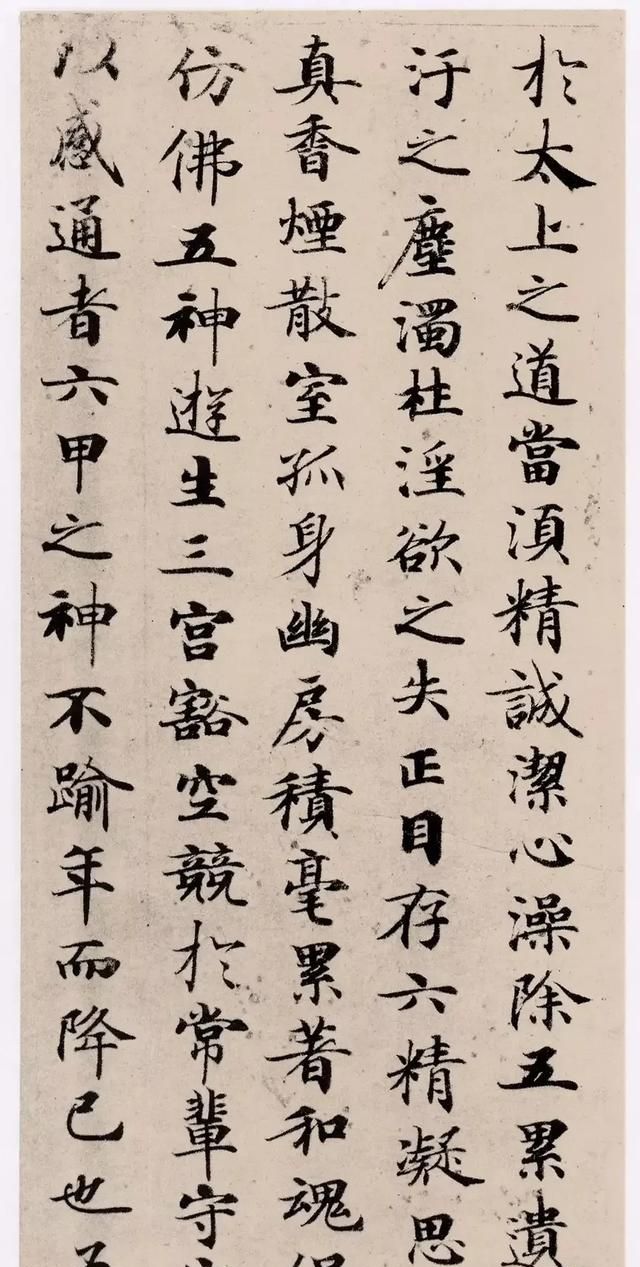 於太上之道當湏精誠潔心澡除五累遺
汙之塵濁杜淫欲之失正目存六精凝思
真香煙散室孤身幽房積毫累著和魂
仿佛五神遊生三宮豁空競於常輩守
以感通者六甲之神不踰年而降已也